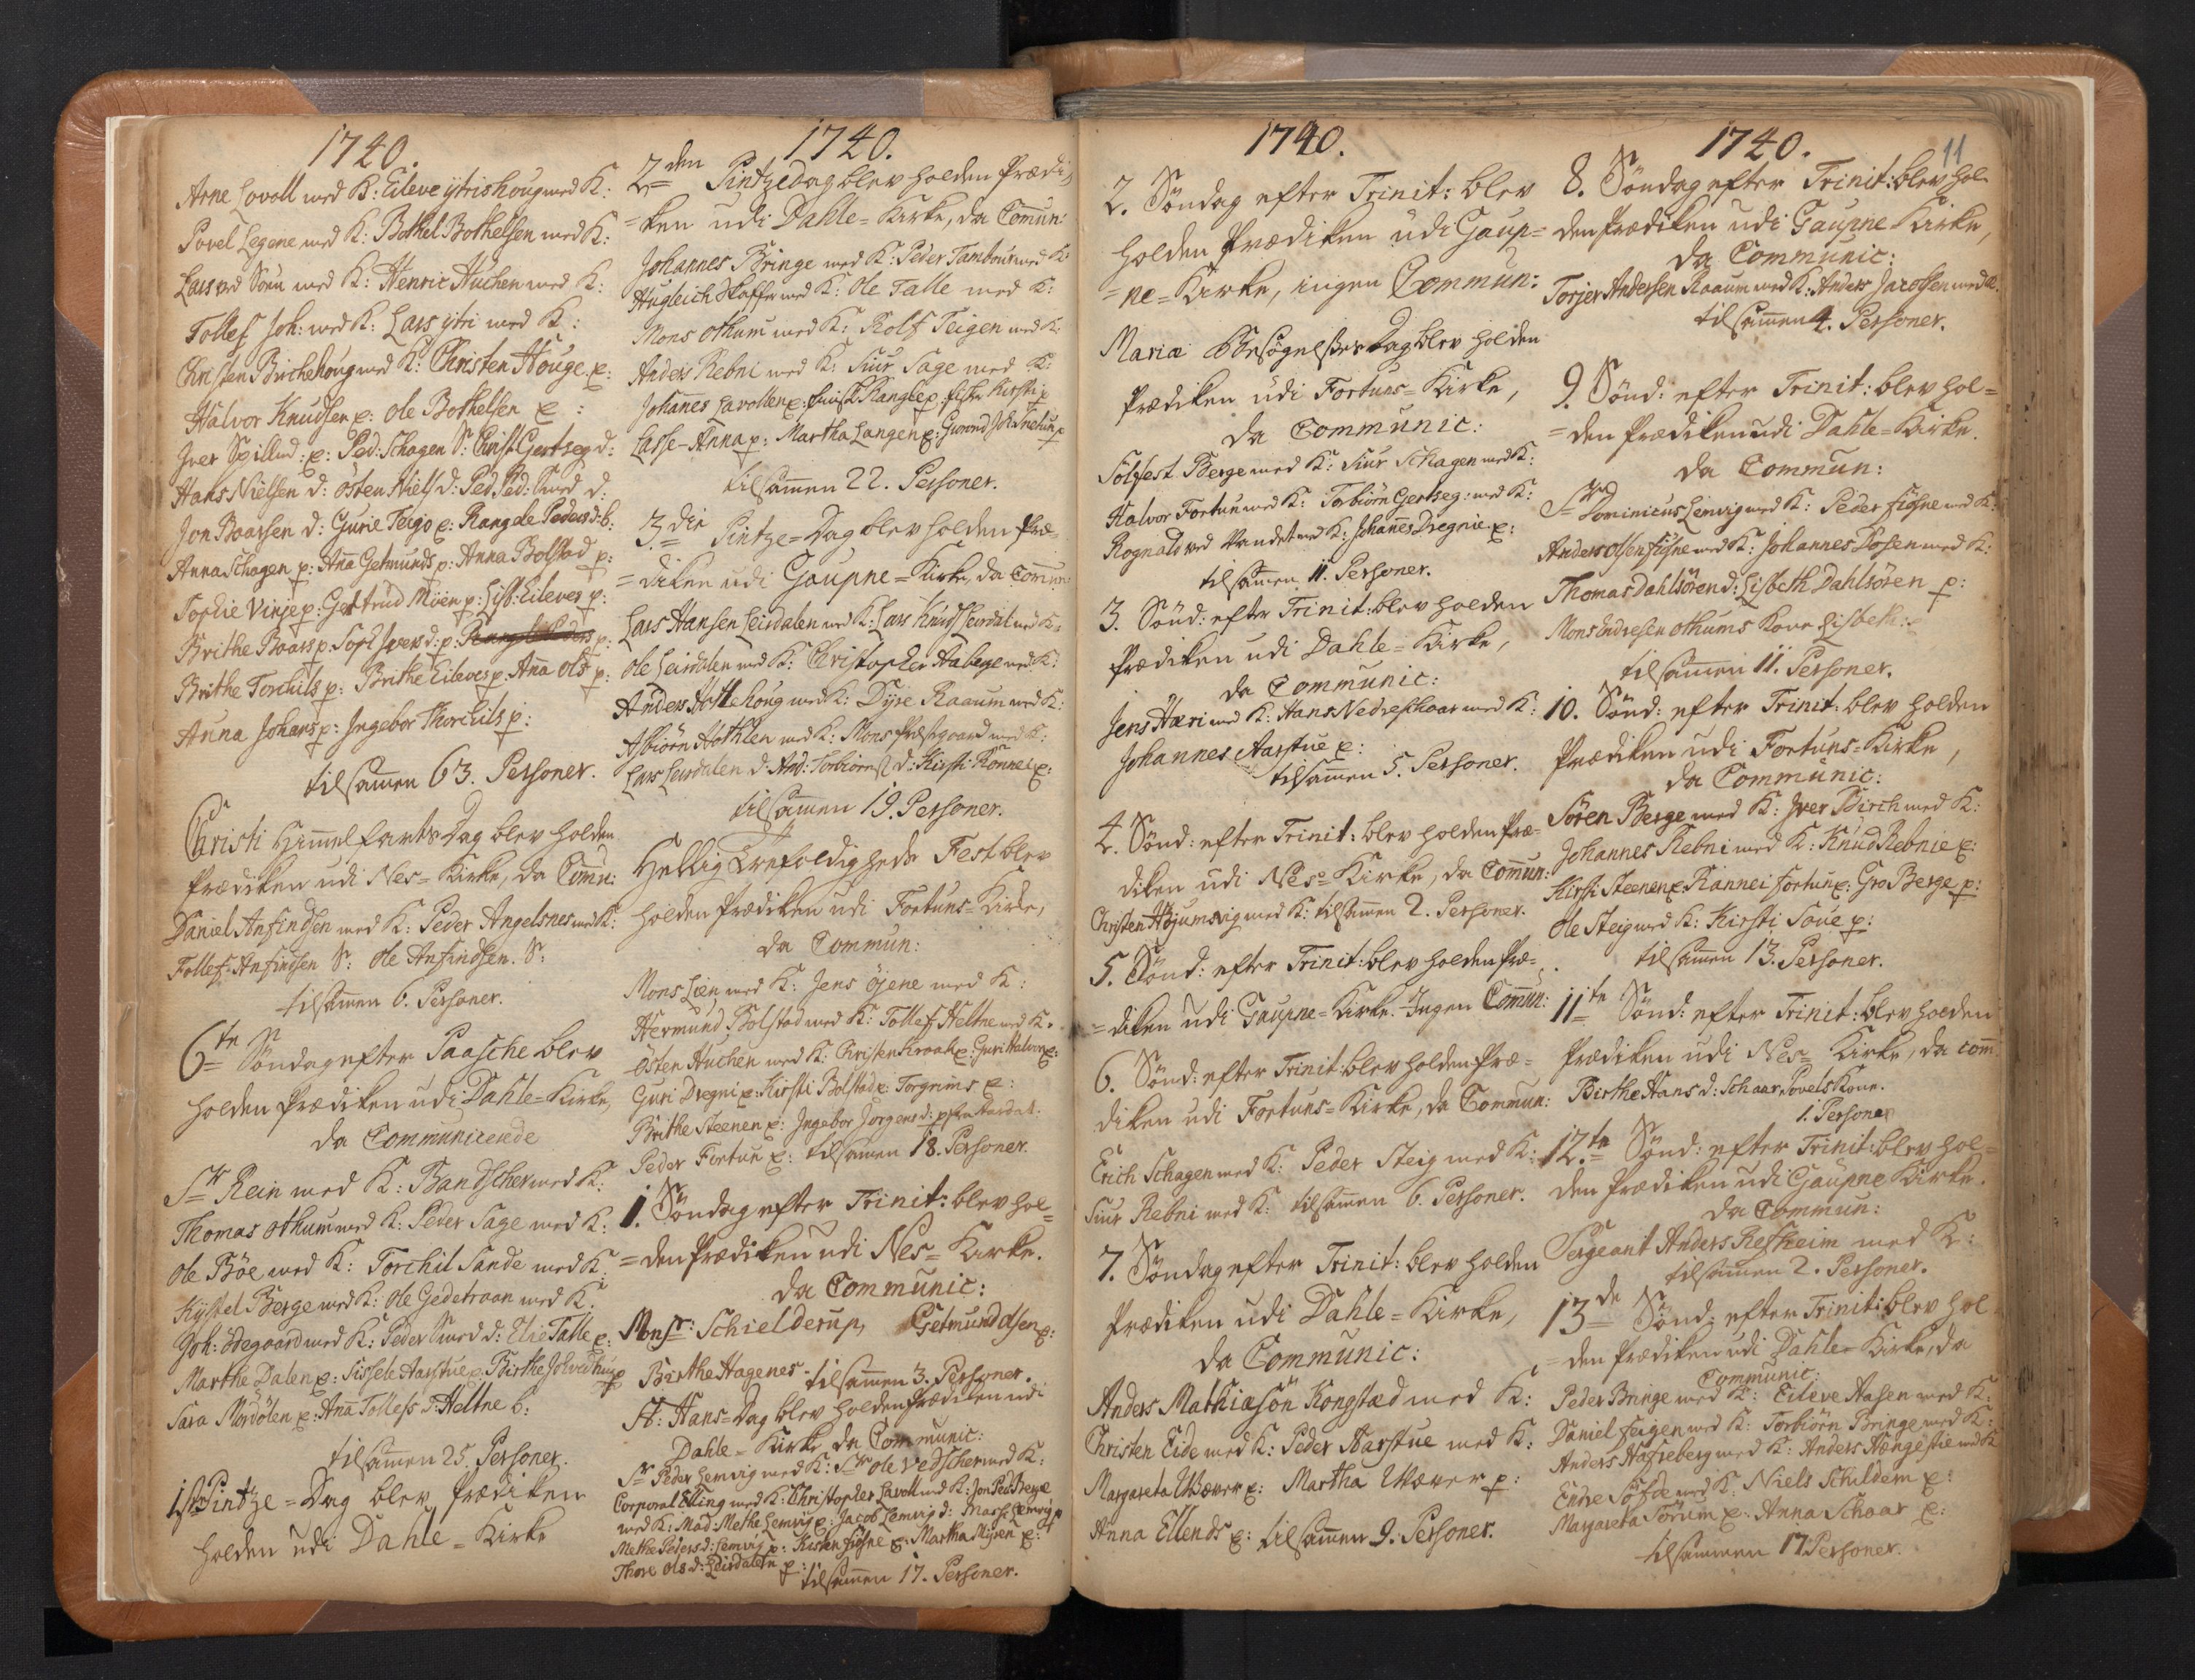 1740.
Arne Lovoll med K: Eileve ytrishoug med K:
Povel Legene med K: Bothel Bothelsen med K:
Lars ved Soen med K: Henric Huchen med K:
Tollef Joh: med K: Lars ytri med K:
Christen Brichehoug med K: Christen Houge e:
Halvor Knudsen e: Ole Bothelsen e:
Iver Spillmd: e: Ped: Schagen S: Christ Gertseg d:
Hans Nielsen d: östen Niels d: Ped Ped: Smed d:
Jon Baarsen d: Gurie Teigo e: Rangele Peders d: b:
Anna Schagen p: Ana Getmunds p: Anna Bolstad p:
Sophie Vinje p: Gertrud Möen p: Lisb: Eileves p:
Brithe Baars p: Soph Ivers d: p:
Brithe Torchils p: Brithe Eileves p: Ana Ols p:
Anna Johans p: Ingebor Thorchils p:
tilsamen 63. Personer.
Christi Himmelfarts Dag blev holden
Prædiken udi Nes=Kirke, da Comu:
Daniel Anfindsen med K: Peder Angelsnes med K:
Tollef Anfindsen S: Ole Anfindsen. S:
tilsamen 6. Personer.
6te Söndag efter Paasche blev
holden Prædiken udi Dahle=Kirke,
da Communicerede
Sr Rein med K: Bandscher med K:
Thomas Othum med K: Peder Sage med K:
Ole Böe med K: Torchil Sande med K:
Kystel Berge med K: Ole Gedetraan med K:
Joh: Ödegaard med K: Peder Smed d: Elie Talle e:
Marthe Dalen e: Sissele Aarstue e: Birthe Johvedhug p
Sara Mordölen e: Ana Tollefs d: Heltne b:
tilsamen 25. Personer.
1ste Pintze=Dag blev Prædiken
holden udi Dahle=Kirke
1740.
2den Pintzedag blev holden Prædi=
=ken udi Dahle=Kirke, da Comun:
Johannes Bringe med K: Peder Tambour med K:
Hugleich Skaffer med K: Ole Talle med K:
Mons Othum med K: Rolf Teigen med K:
Anders Rebni med K: Siur Sage med K:
Johanes Lavollen e: Rangle p: Kirsti p
Lasse-Anna p: Martha Langen e: Gurond
tilsamen 22. Personer.
3die Pintze=Dag blev holden Præ=
=diken udi Gaupne=Kirke, da Comun:
Lars Hansen Leirdalen med K: Lars Knuds Leirdal med K:
Ole Leirdalen med K: Christopher Haberge med K:
Anders Hottehoug med K: Dyre Raaum med K:
Asbiörn Hothlen med K: Mons Prestgaard med K:
Lars Leirdalen d: And: Torbiörns d: Kirsti Rönnei e:
tilsamen 19. Personer.
Hellig Trefoldigheds Fest blev
holden Prædiken udi Fortuns=Kirke,
da Commun:
Mons Lien med K: Jens Öjene med K:
Hermund Bolstad med K: Tollef Heltne med K.
Östen Huchen med K: Christen Kraak e: Guri Halvor e:
Guri Dregni e: Kirsti Bolstad e: Torgrims e:
Brithe Steenen e: Ingebor Jorgens d: p fra Aardal.
Peder Fortun e: tilsamen 18. Personer.
1. Söndag efter Trinit: blev hol=
=den Prædiken udi Nes=Kirke.
da Communic:
Monsr: Schielderup, Getmund Olsen e:
Birthe Hagenes. tilsamen 3. Personer.
St: Hans=Dag blev holden Prædiken udi
Dahle=Kirke, da Communic:
Sr Peder Lemvig med K: Sr Ole Vedscher med K:
Corporal Elling med K: Christopher Lavoll med K: Jon Ped: Berge
med K: Mad: Methe Lemvig e: Jacob Lemvig d: Marg: Lemvig p
Methe Peders d: Lemvig p: Kirsten Fighne e: Martha Mijsen e:
Thore Ols d: Leirdalen p: tilsamen 17. Personer.
1740.
2. Söndag efter Trinit: blev
holden Prædiken udi Gaup=
=ne=Kirke, ingen Commun:
Mariæ Besögnelses Dag blev holden
Prædiken udi Fortuns=Kirke,
da Communic:
Solfest Berge med K: Siur Schagen med K:
Halvor Fortun med K: Torbiörn Gertseg: med K:
Rognald ved Vandet med K: Johanes Dregnie e:
tilsamen 11. Personer.
3. Sönd: efter Trinit: blev holden
Prædiken udi Dahle=Kirke,
da Communic:
Jens Hæri med K: Hans Nedreschaar med K:
Johannes Aarstue e:
tilsamen 5. Personer.
4. Sönd: efter Trinit: blev holden Præ=
diken udi Nes=Kirke, da Comun:
Christen Högumsvig med K: tilsamen 2. Personer.
5. Sönd: efter Trinit: blev holden Præ=
=diken udi Gaupne=Kirke. Ingen Comun:
6. Sönd: efter Trinit: blev holden Præ=
diken udi Fortuns=Kirke, da Commun:
Erich Schagen med K: Peder Steig med K:
Siur Rebni med K: tilsamen 6. Personer.
7. Söndag efter Trinit: blev holden
Prædiken udi Dahle=Kirke,
da Communic:
Anders Mathiæsön Kongstad med K:
Christen Eide med K: Peder Aarstue med K:
Margareta Wæver e: Martha Wæver p:
Anna Ellends e: tilsamen 9. Personer.
1740.
11
8. Söndag efter Trinit: blev hol=
den Prædiken udi Gaupne=Kirke,
da Communic:
Torjer Andersen Raaum med K: Anders Jacobsen med K.
tilsamen 4. Personer.
9. Sönd: efter Trinit: blev hol=
=den Prædiken udi Dahle=Kirke.
da Commun:
Sr Dominicus Lemvig med K: Peder Fighne med K:
Anders Olsen Fighne med K: Johannes Kosen med K:
Thomas Dahlsören d: Lisbeth Dahlsören p:
Mons Endresen Othums Kone Lisbeth:
tilsamen 11. Personer.
10. Sönd: efter Trinit: blev holden
Prædiken udi Fortuns=Kirke,
da Communic:
Sören Berge med K: Iver Birch med K:
Johannes Rebni med K: Knud Rebnie e:
Kirsti Steenen e: Rannei Fortun e: Gro Berge p:
Ole Steig med K: Kirsti Soue p:
tilsamen 13. Personer.
11te Sönd: efter Trinit: blev holden
Prædiken udi Nes=Kirke, da Com:
Birthe Hans d: Schaar, Povels Kone.
1. Person
12te Sönd: efter Trinit: blev hol=
den Prædiken udi Gaupne Kirke.
da Commun:
Sergeant Anders Refheim med K:
tilsamen 2. Personer.
13de Sönd: efter Trinit: blev hol
=den Prædiken udi Dahle=Kirke, da
Communic:
Peder Bringe med K: Eileve Aasen med K:
Daniel Feigen med K: Torbiörn Bringe med K:
Anders Hafreberg med K: Anders Hængestie med K
Endre Söfde med K: Niels Schuldem e:
Margareta Sörum e: Anna Schaar e:
tilsammen 17 Personer.